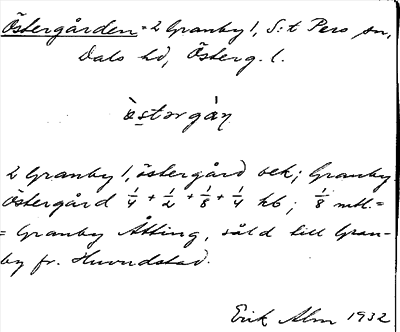 Östergården = 2 Granby 1, S:t Pers sn,
Dals hd, Österg. l.
ὸstərgàn
2 Granby 1, östergård oek; Granby
Östergård 1/4 + 1/2 + 1/8 + 1/4 hb; 1/8 mtl. =
= Granby Åtting, såld till Gran-
by fr. Huvudstad.
Erik Alm 1932